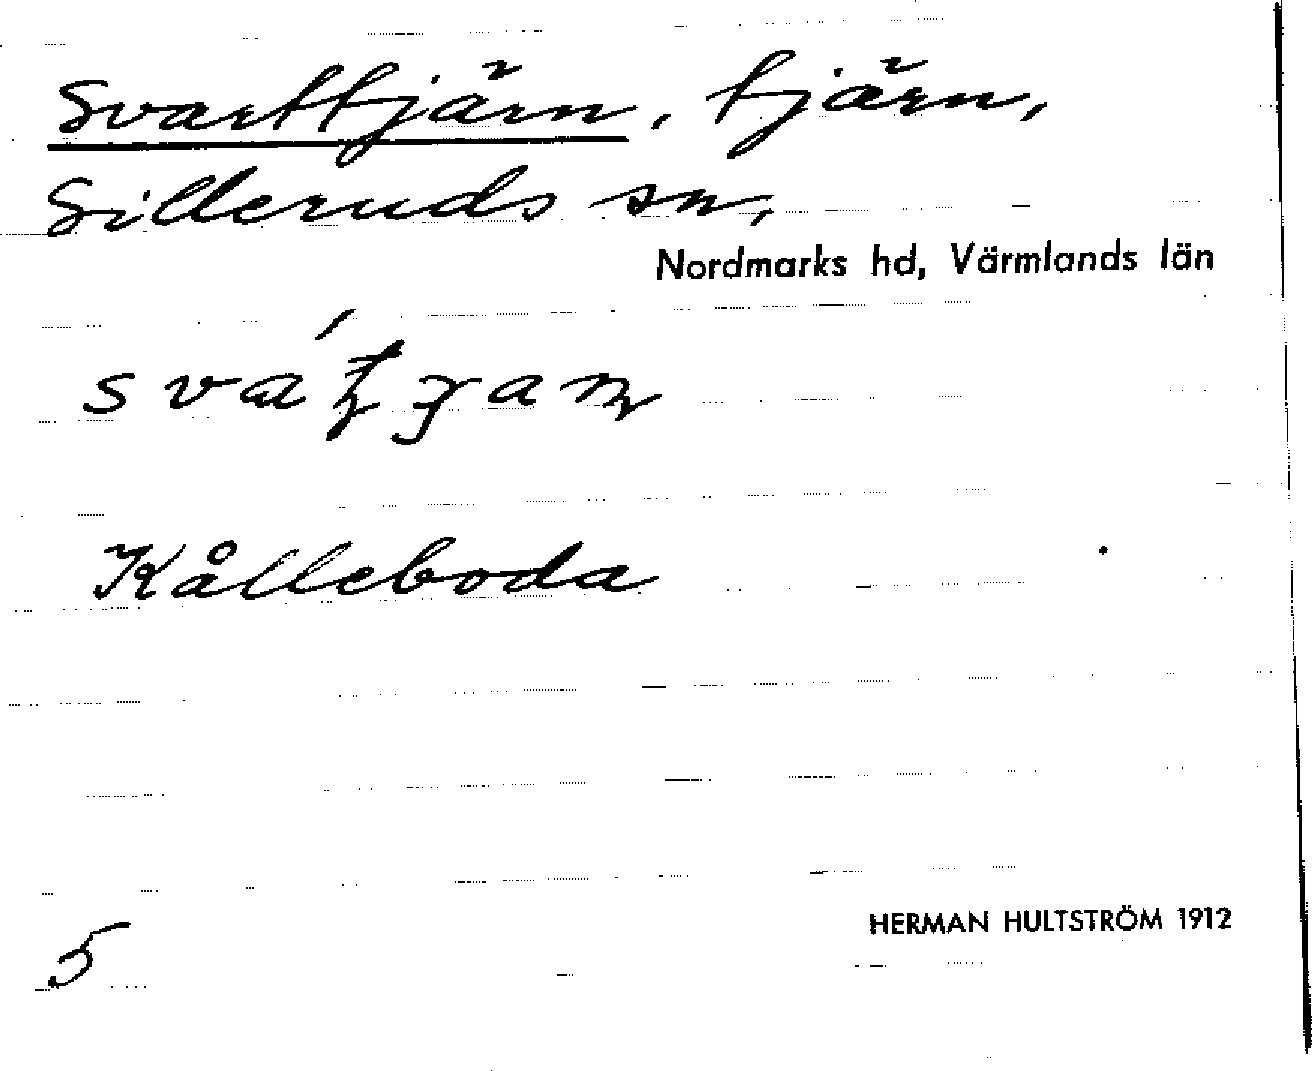 Svarttjärn, tjärn,
Silleruds sn,
Nordmarks hd, Värmlands län
Kålleboda
HERMAN HULTSTRÖM 1912
5